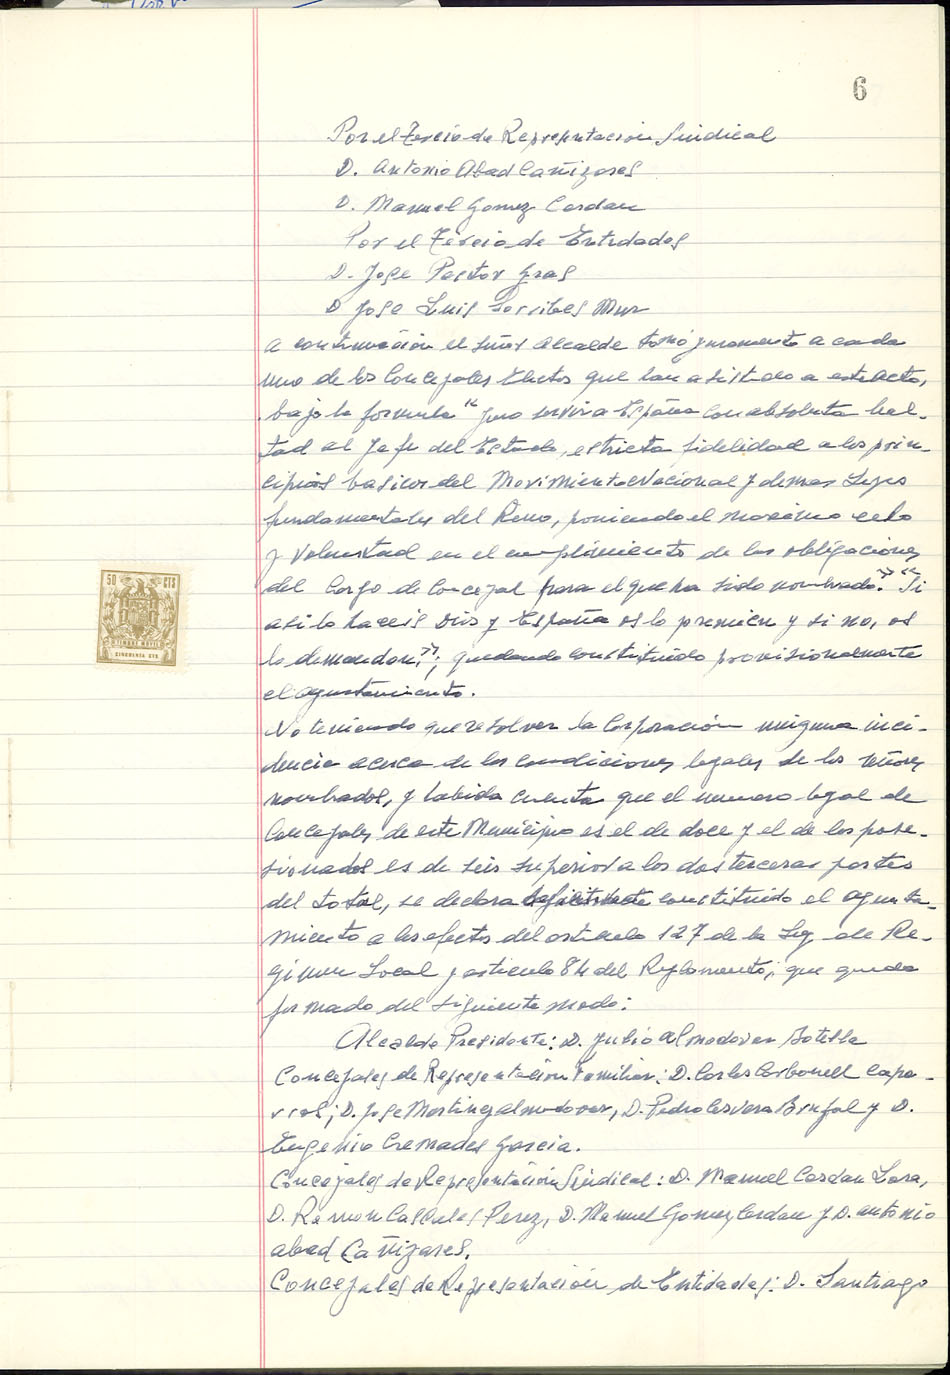 6
Por el Tercio de Representacion Sindical
D. Antonio Abad Cañizares
D. Manuel Gomez Cerdan
Por el Tercio de Entidades
D. Jose Pastor Gras
D Jose Luis Sorribes Mur
A continuación el señor Alcalde tomó juramento a cada
uno de los Concejales Electos que han asistido a este acto,
bajo la formula "Juro servir a España con absoluta leal-
tad al Jefe del Estado, estricta fidelidad a los prin-
cipios basicos del Movimiento Nacional y demas Leyes
fundamentales del Reino, poniendo el maximo celo
y voluntad en el cumplimiento de las obligaciones
del Cargo de Concejal para el que ha sido nombrado." "Si
asi lo haceis Dios y España os lo premien y si no, os
lo demanden,"; quedando constituido provisionalmente
el ayuntamiento.
No teniendo que resolver la Corporación ninguna inci-
dencia acerca de las condiciones legales de los señores
nombrados, y habida cuenta que el numero legal de
Concejales de este Municipio es el de doce y el de los pose-
sionados es de seis superior a los dos terceras partes
del total, se declara constituido el ayunta-
miento a los efectos del articulo 127 de la Ley de Re-
gimen Local y articulo 84 del Reglamento; que queda
formado del siguiente modo:
Alcalde Presidente: D. Julio Almodovar Botella
Concejales de Representacion Familiar: D. Carlos Carbonell Capa-
rros; D. Jose Martinez Almodovar, D. Pedro Cervera Brufal y D.
Eugenio Cremades Garcia.
Concejales de Representación Sindical: D. Manuel Cerdan Lara,
D. Ramon Cascales Perez, D. Manuel Gomez Cerdan y D. Antonio
Abad Cañizares.
Concejales de Representación de Entidades: D. Santiago
50 CTS
TIMBRE MOVIL
CINCUENTA CTS